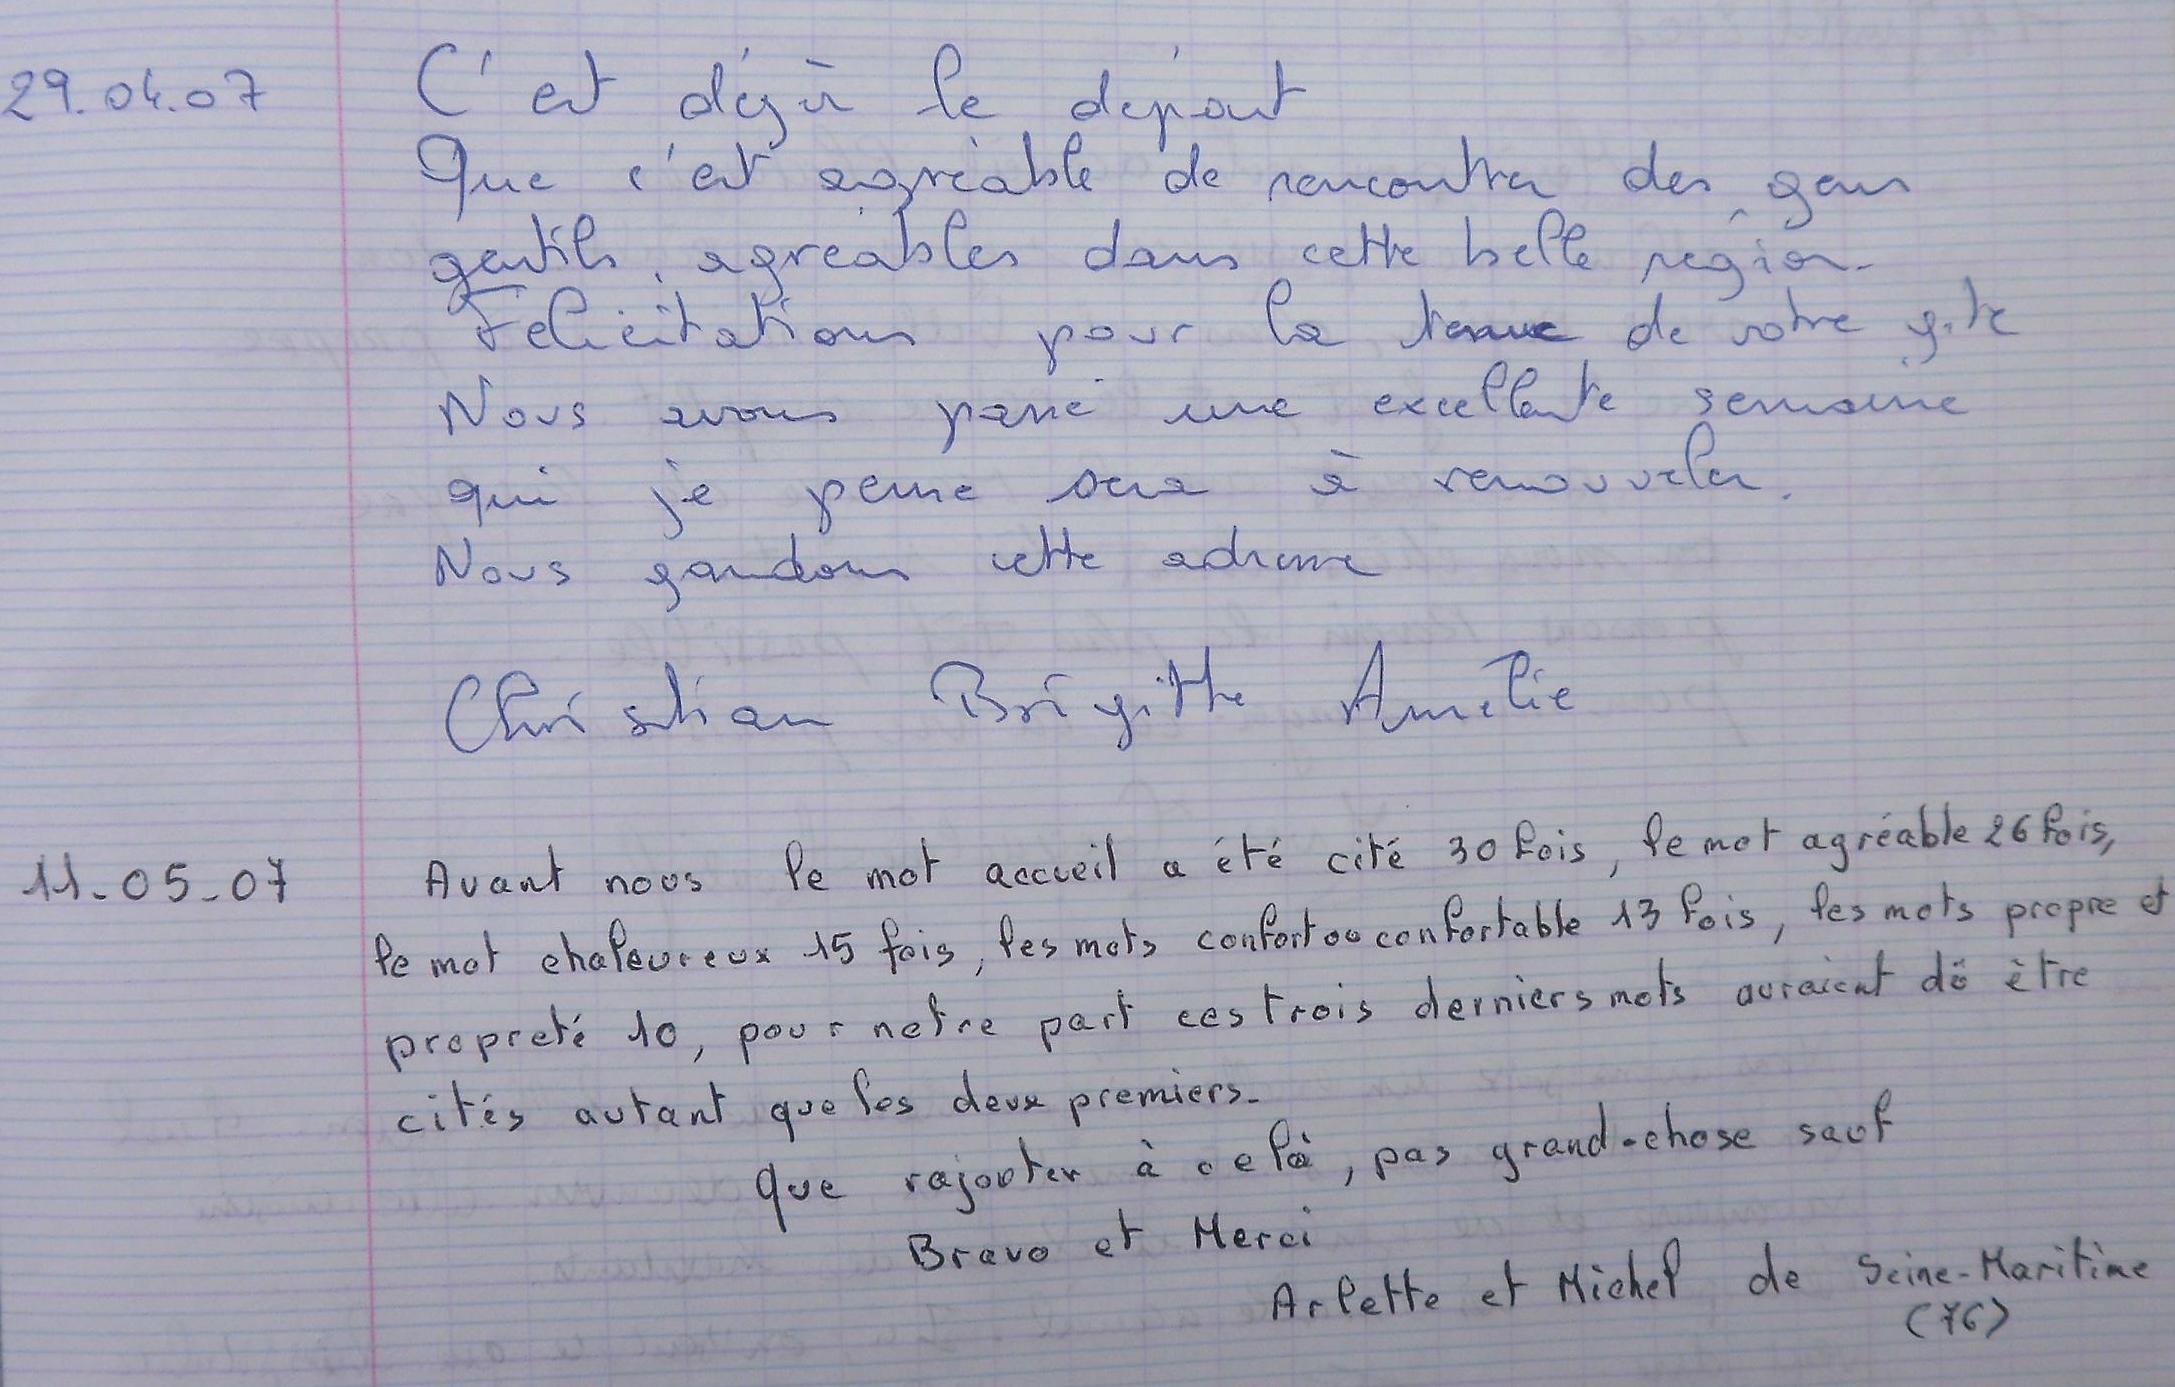 29.04.07 C'est déjà le départ
Que c'est agréable de rencontrer des gens
gentils, agréables dans cette belle région.
Félicitations pour la tenue de votre gîte
Nous avons passé une excellente semaine
qui je pense sera à renouveler.
Nous gardons cette adresse
Christian Brigitte Amélie
11-05-07 Avant nous le mot accueil a été cité 30 fois, le mot agréable 26 fois,
le mot chaleureux 15 fois, les mots confort ou confortable 13 fois, les mots propre et
propreté 10, pour notre part ces trois derniers mots auraient dû être
cités autant que les deux premiers.
Que rajouter à celà, pas grand-chose sauf
Bravo et Merci
Arlette et Michel de Seine-Maritime
(76)